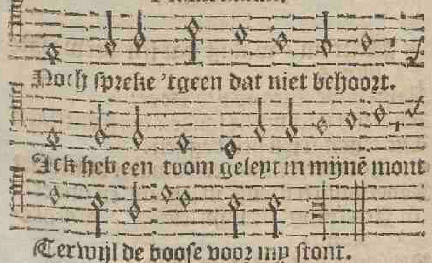 Noch spreke 'tgeen dat niet behoort.
Ick heb een toom geleyt in mijnē mont
Terwijl de boose voor my stont.